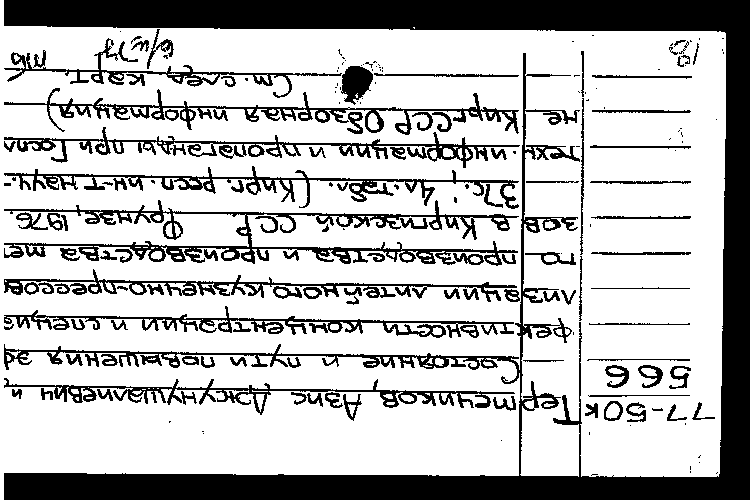 77-50к
566
Тертечников, Азис Джунушалиевич и
Состояние и пути повышения эф
фективности концентрации и специа
лизации литейного, кузнечно-прессово
го производства и производства ме
зов в Киргизской ССР. Фрунзе, 1976.
37с.; 4л.табл. (Кирг. респ. ин-т науч.-
техн. информации и пропаганды при Госпл
не КиргССР Обзорная информация)
См. след. карт.
18